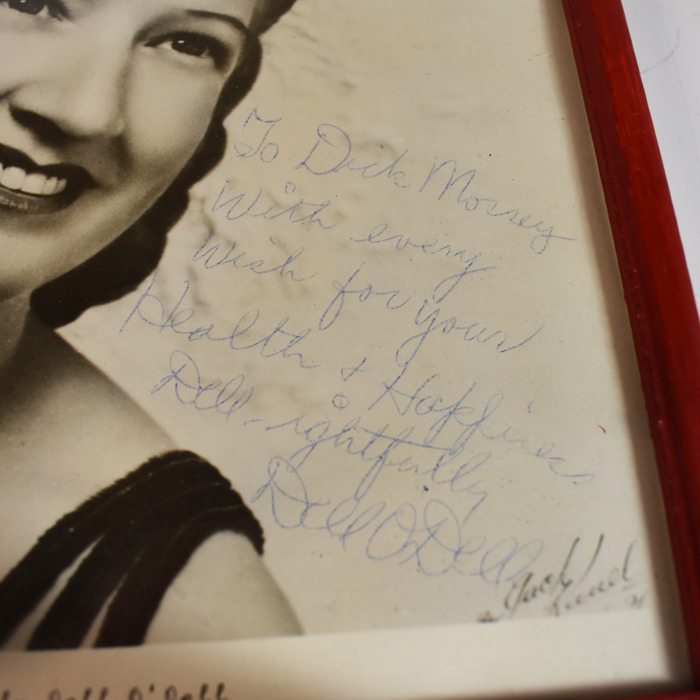 To Dick Mossey
With every
Wish for your
Health & Happiness
Dell-ightfully
Dell O'Dell
Jack
Dell O'Dell